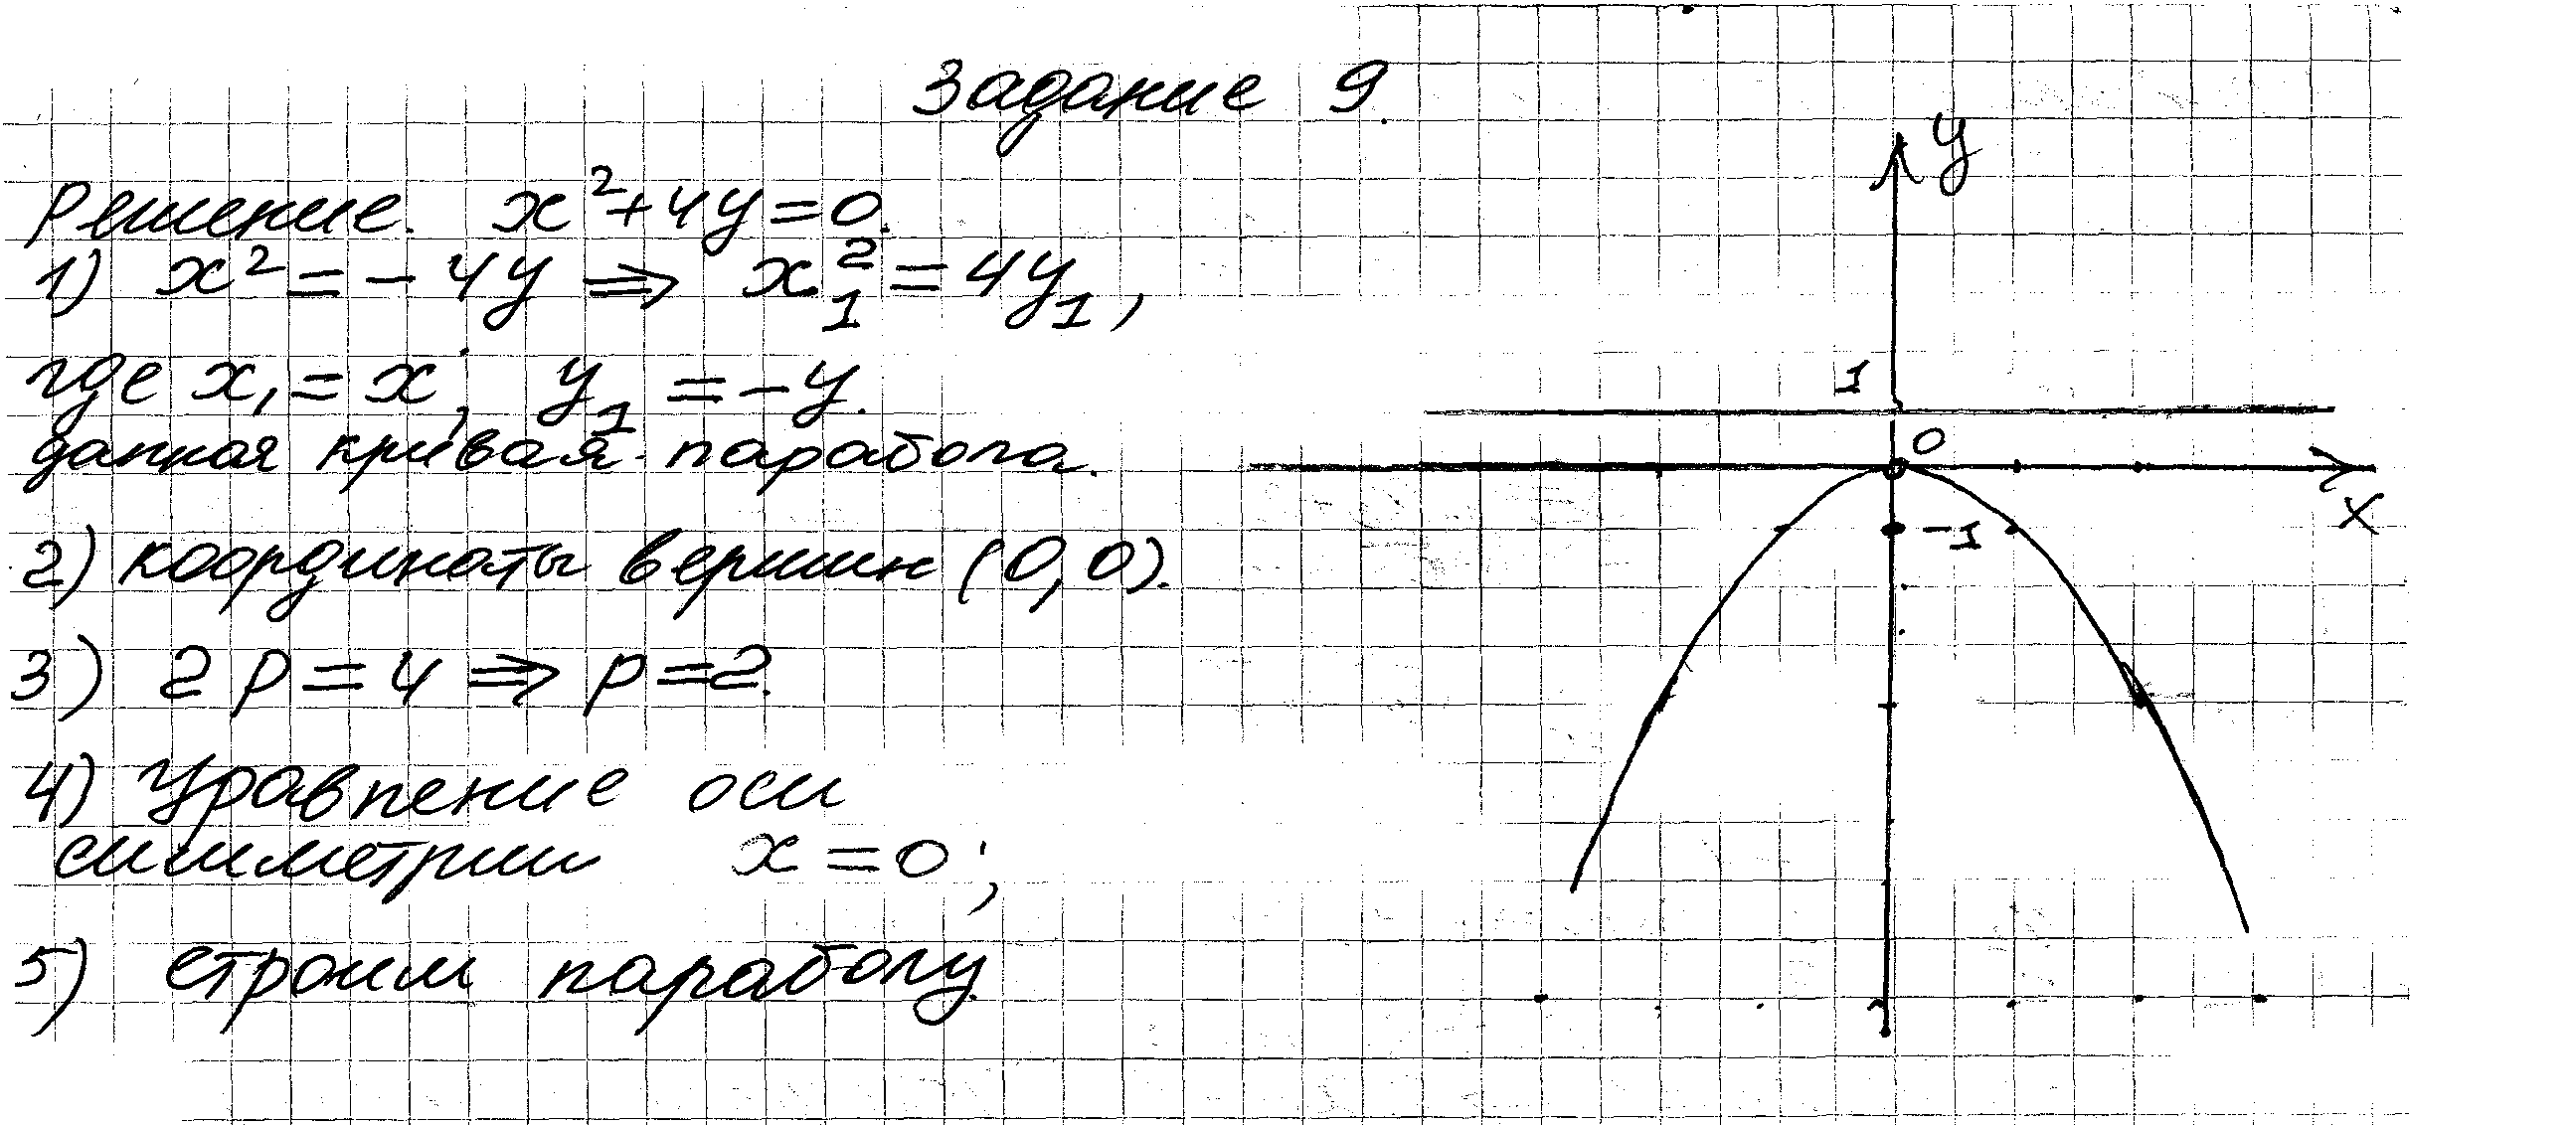 Задание 9.
Решение. x²+4y=0.
1) x² = -4y ⇒ x₁² = 4y₁,
где x₁ = x; y₁ = -y.
данная кривая - парабола.
2) координаты вершин (0,0).
3) 2p = 4 ⇒ p=2.
4) Уравнение оси
симметрии x=0;
5) строим параболу.
y
1
0
x
-1